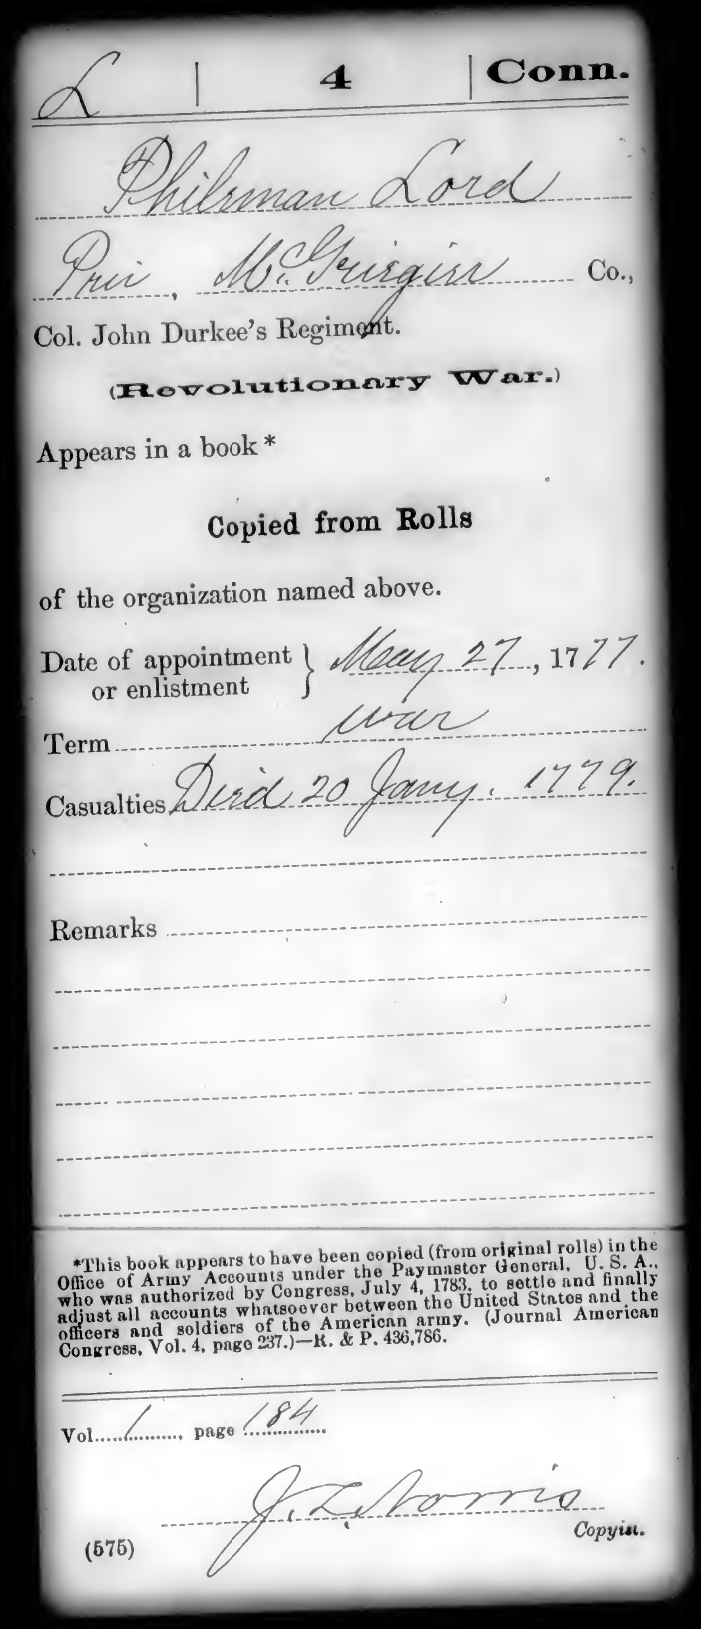 L | 4 | Conn.
Philiman Lord
Priv, McGriegier Co.,
Col. John Durkee's Regiment.
(Revolutionary War.)
Appears in a book *
Copied from Rolls
of the organization named above.
Date of appointment or enlistment } May 27, 1777.
Term war
Casualties Died 20 Jany. 1779.
Remarks
*This book appears to have been copied (from original rolls) in the
Office of Army Accounts under the Paymaster General, U. S. A.,
who was authorized by Congress, July 4, 1783, to settle and finally
adjust all accounts whatsoever between the United States and the
officers and soldiers of the American army. (Journal American
Congress, Vol. 4, page 237.)—R. & P. 436,786.
Vol. 1, page 184
J. L. Norris
Copyist.
(575)